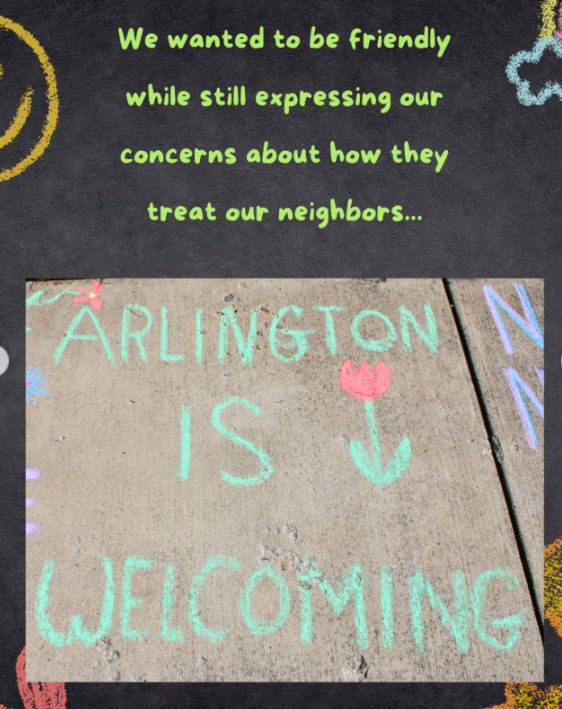 We wanted to be friendly
while still expressing our
concerns about how they
treat our neighbors...
ARLINGTON
IS
WELCOMING
N
N